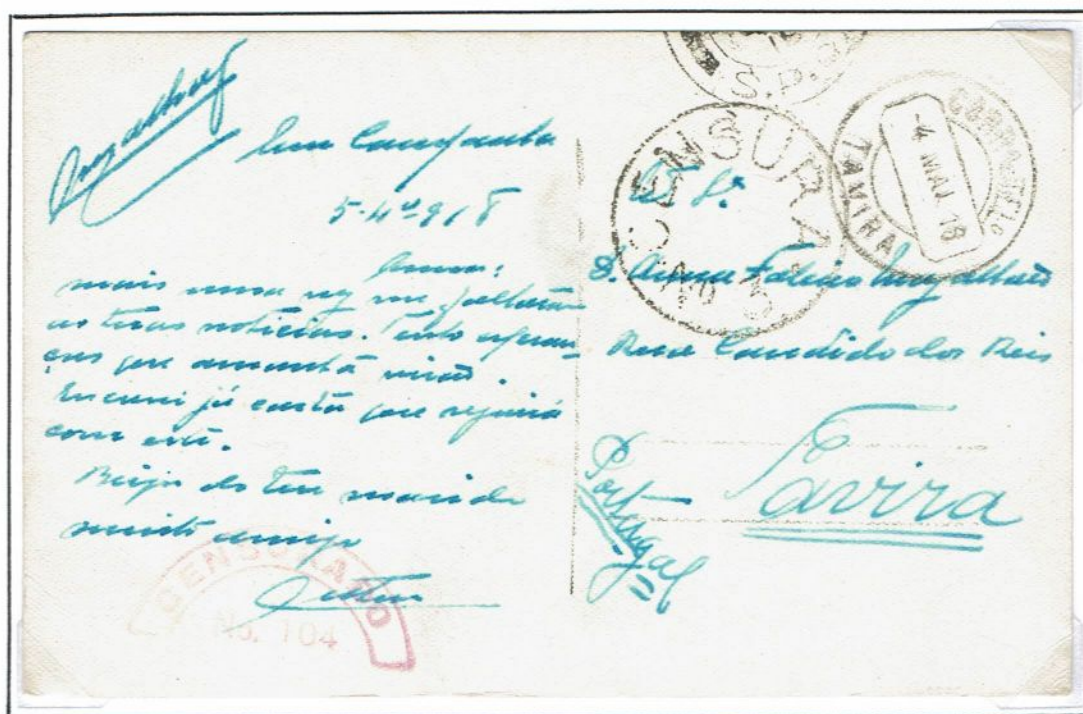 Magalhães
Em Campanha
5-4º-918
Anna:
mais uma vez me faltarão
as tuas noticias. Tenho esperan-
ças que amanhã virão.
Escrevi já carta que seguirá
com esta.
Beijos do teu marido
muito amigo
CENSURADO
No. 104
S.P.
CENSURA
No 3
CORRº E TELº
-4 MAI. 18
TAVIRA
D. Anna Falcão Magalhães
Rua Candido dos Reis
Tavira
Portugal